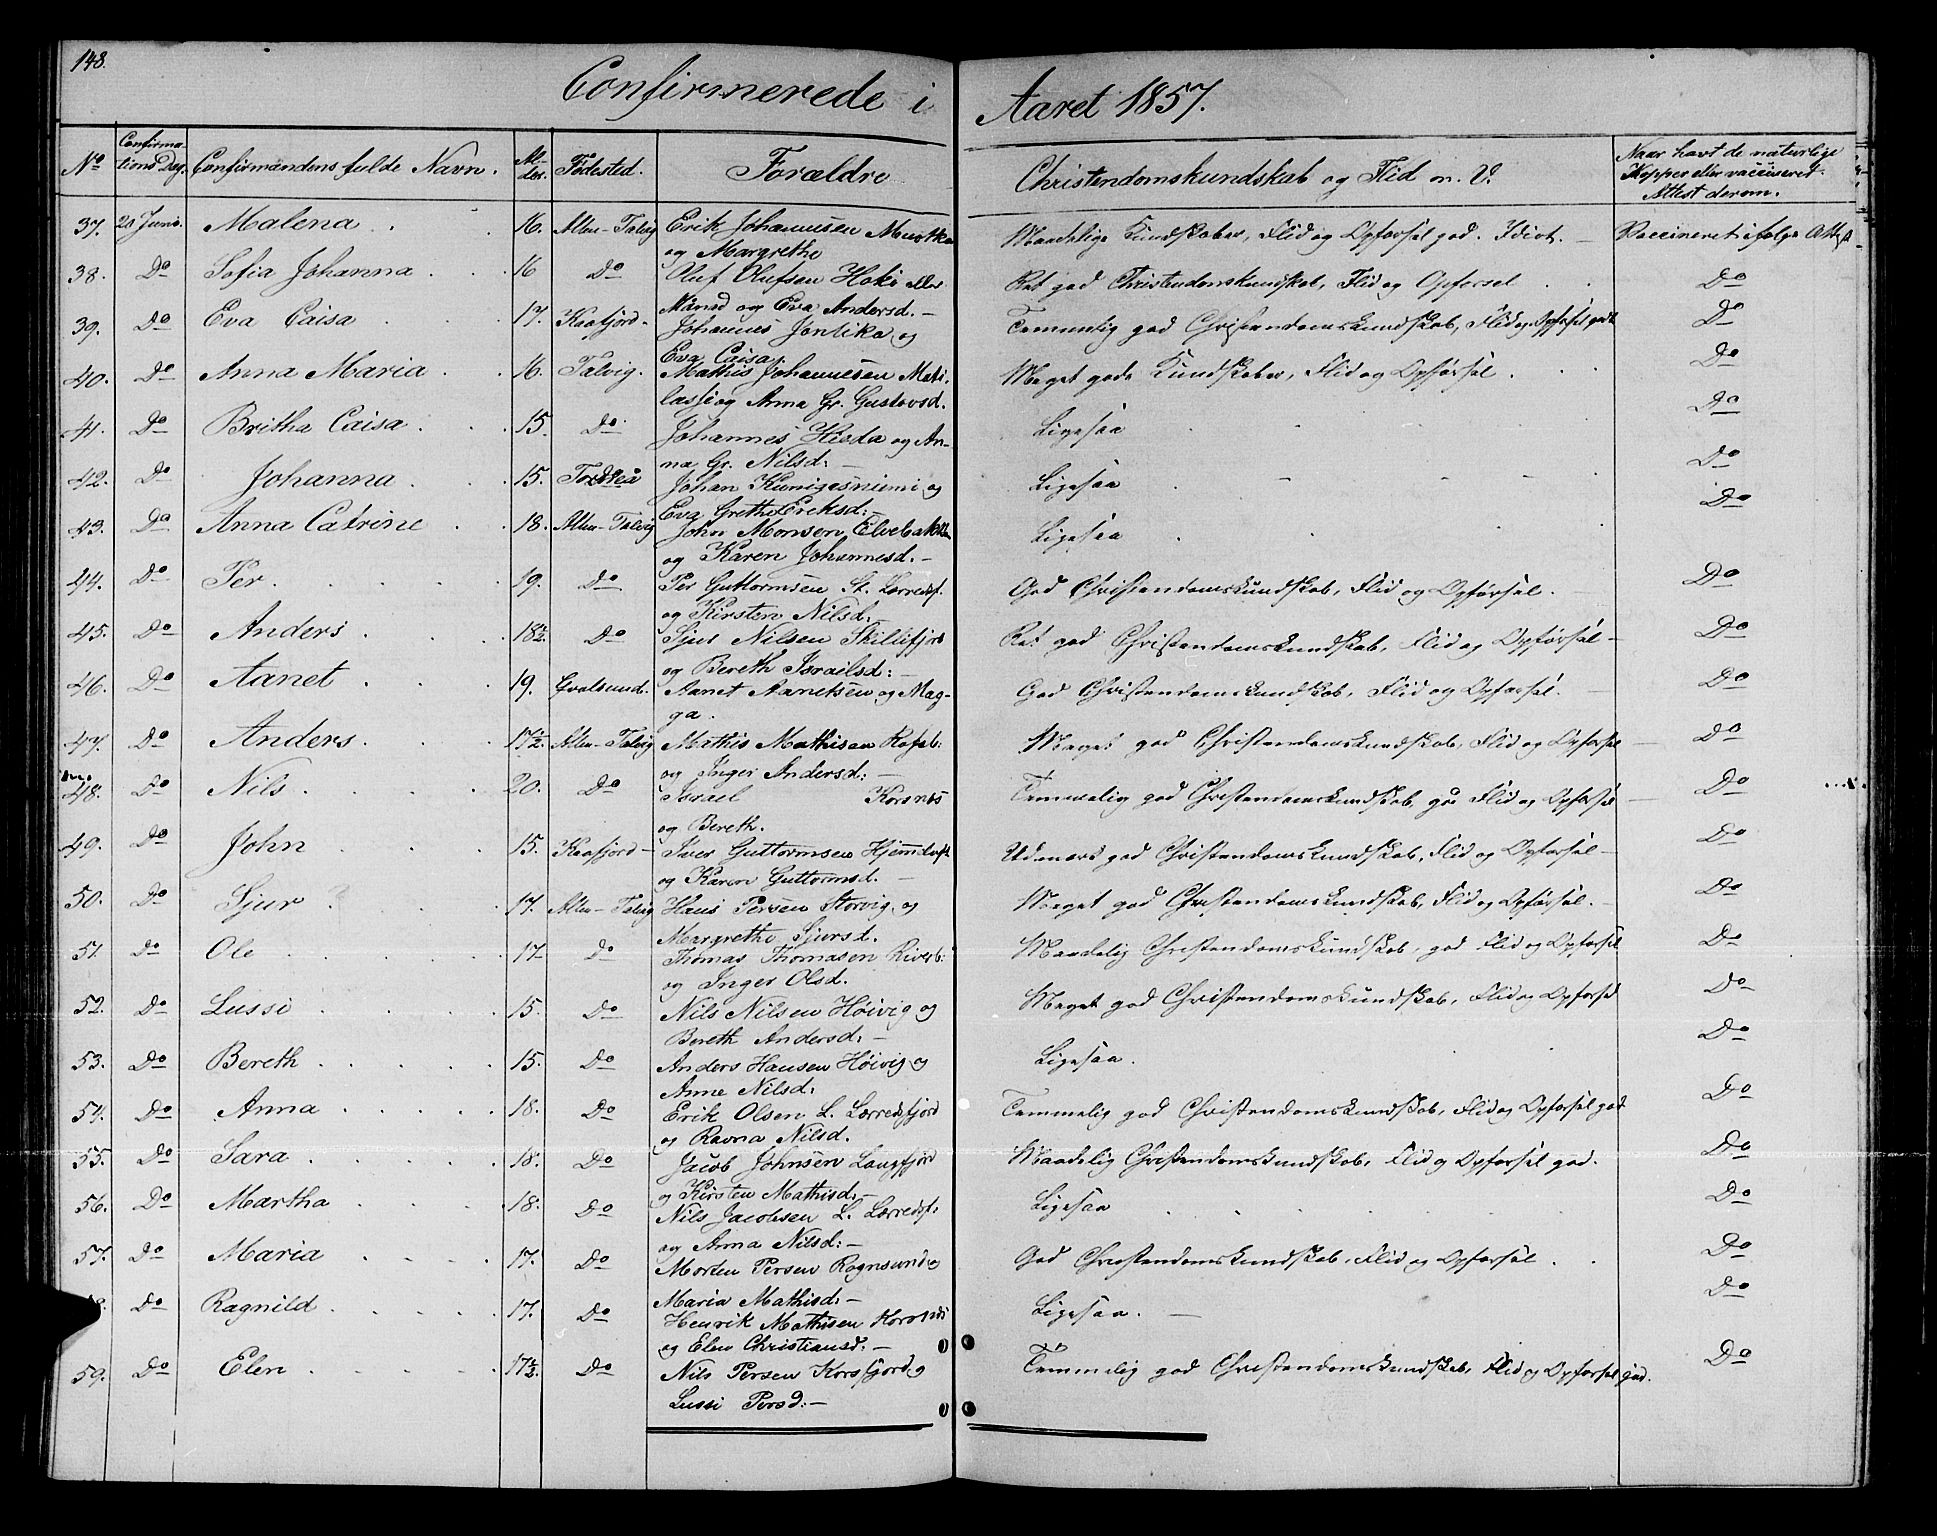 148.
Confirmerede i Aaret 1857.
No Confirmations Dag. Confirmandens fulde Navn. Alder. Fødested. Forældre Christendomskundskab og Flid m. V. Naar havt de naturlige Kopper eller vaccineret. Attest derom.
37. 28 Juni. Malena 16. Alten-Talvig Erik Johannesen Muotka Maadelige Kundskaber, Flid og Opførsel god. Idiot. Vaccineret ifølge Attest
og Margrethe
38. Do Sofia Johanna 16 Do Oluf Olufsen Hoki eller Ret god Christendomskundskab, Flid og Opførsel Do
og Eva Andersd.
39. Do Eva Caisa 17. Kaafjord Johannes Jontika og Temmelig god Christendomskundskab, Flid og Opførsel godt Do
Eva Caisa.
40. Do Anna Maria 16. Talvig. Mathis Johannesen Mati- Meget gode Kundskaber, Flid og Opførsel. Do
lassi og Anna Gr. Gustavsd.
41. Do Britha Caisa 15. Do Johannes Kieda og An- Ligesaa Do
na Gr. Nilsd:
42. Do Johanna 15. Johan Kunigesniemi og Ligesaa Do
Eva Grethe Eriksd:
43. Do Anna Catrine 18. Alten-Talvig John Monsen Elvebakken Ligesaa Do
og Karen Johannesd.
44. Do Per 19. Do Per Guttormsen St. Lerredsf. God Christendomskundskab, Flid og Opførsel. Do
og Kirsten Nilsd.
45. Do Anders 18½. Do Sjur Nilsen Skillefjord Ret god Christendomskundskab, Flid og Opførsel Do
og Bereth Israilsd:
46. Do Aanet 19. Qvalsund. Aanet Aanetsen og Mag- God Christendomskundskab, Flid og Opførsel. Do
ga.
47. Do Anders 17½. Alten-Talvig Mathis Mathisen Rafsb: Meget god Christendomskundskab, Flid og Opførsel Do
og Inger Andersd:
48. Do Nils 20. Do Israel Korsnes Temmelig god Christendomskundskab, Flid og Opførsel Do
og Bereth.
49. Do John 15. Kaafjord Iver Guttormsen Hjemmeluft Udmærk god Christendomskundskab, Flid og Opførsel Do
og Karen Guttormsd.
50. Do Sjur 17. Alten-Talvig Hans Persen Storvig og Meget god Christendomskundskab, Flid og Opførsel. Do
Margrethe Sjursd.
51. Do Ole 17 Do Thomas Thomasen Riverb: Maadelig Christendomskundskab, god Flid og Opførsel Do
og Inger Olsd.
52. Do Lussi 15. Do Nils Nilsen Høivig og Meget god Christendomskundskab, Flid og Opførsel Do
Bereth Andersd:
53. Do Bereth 15. Do Anders Hansen Høivig og Ligesaa. Do
Anne Nilsd:
54. Do Anna 18. Do Erik Olsen L. Lerredsfjord Temmelig god Christendomskundskab, Flid og Opførsel god Do
og Ravna Nilsd.
55. Do Sara 18. Do Jacob Johnsen Langfjord Maadelig Christendomskundskab, Flid og Opførsel god. Do
og Kirsten Mathisd:
56. Do Martha 18. Do Nils Jacobsen L. Lerredsf: Ligesaa Do
og Anna Nilsd:
57. Do Maria 17. Do Morten Persen Rognsund og God Christendomskundskab, Flid og Opførsel Do
Maria Mathisd:
Do Ragnild 17. Do Henrik Mathisen Korsnes Ligesaa. Do
og Elen Christiansd:
59. Do Elen 17½. Do Nils Persen Korsfjord og Temmelig god Christendomskundskab, Flid og Opførsel god. Do
Lussi Persd: